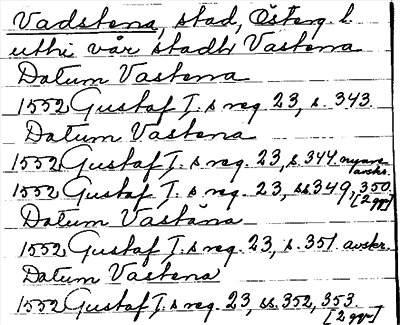 Vadstena, stad, Österg. l.
uthi vår stadh Vastena
Datum Vastena
1552 Gustaf I:s reg. 23, s. 343.
Datum Vastena
1552 Gustaf I:s reg. 23, s. 344 nyare avskr.
1552 Gustaf I:s reg. 23, ss. 349, 350. [2 ggr]
Datum Vastäna
1552 Gustaf I:s reg. 23, s. 351. avskr.
Datum Vastena
1552 Gustaf I:s reg. 23, ss. 352, 353. [2 ggr]